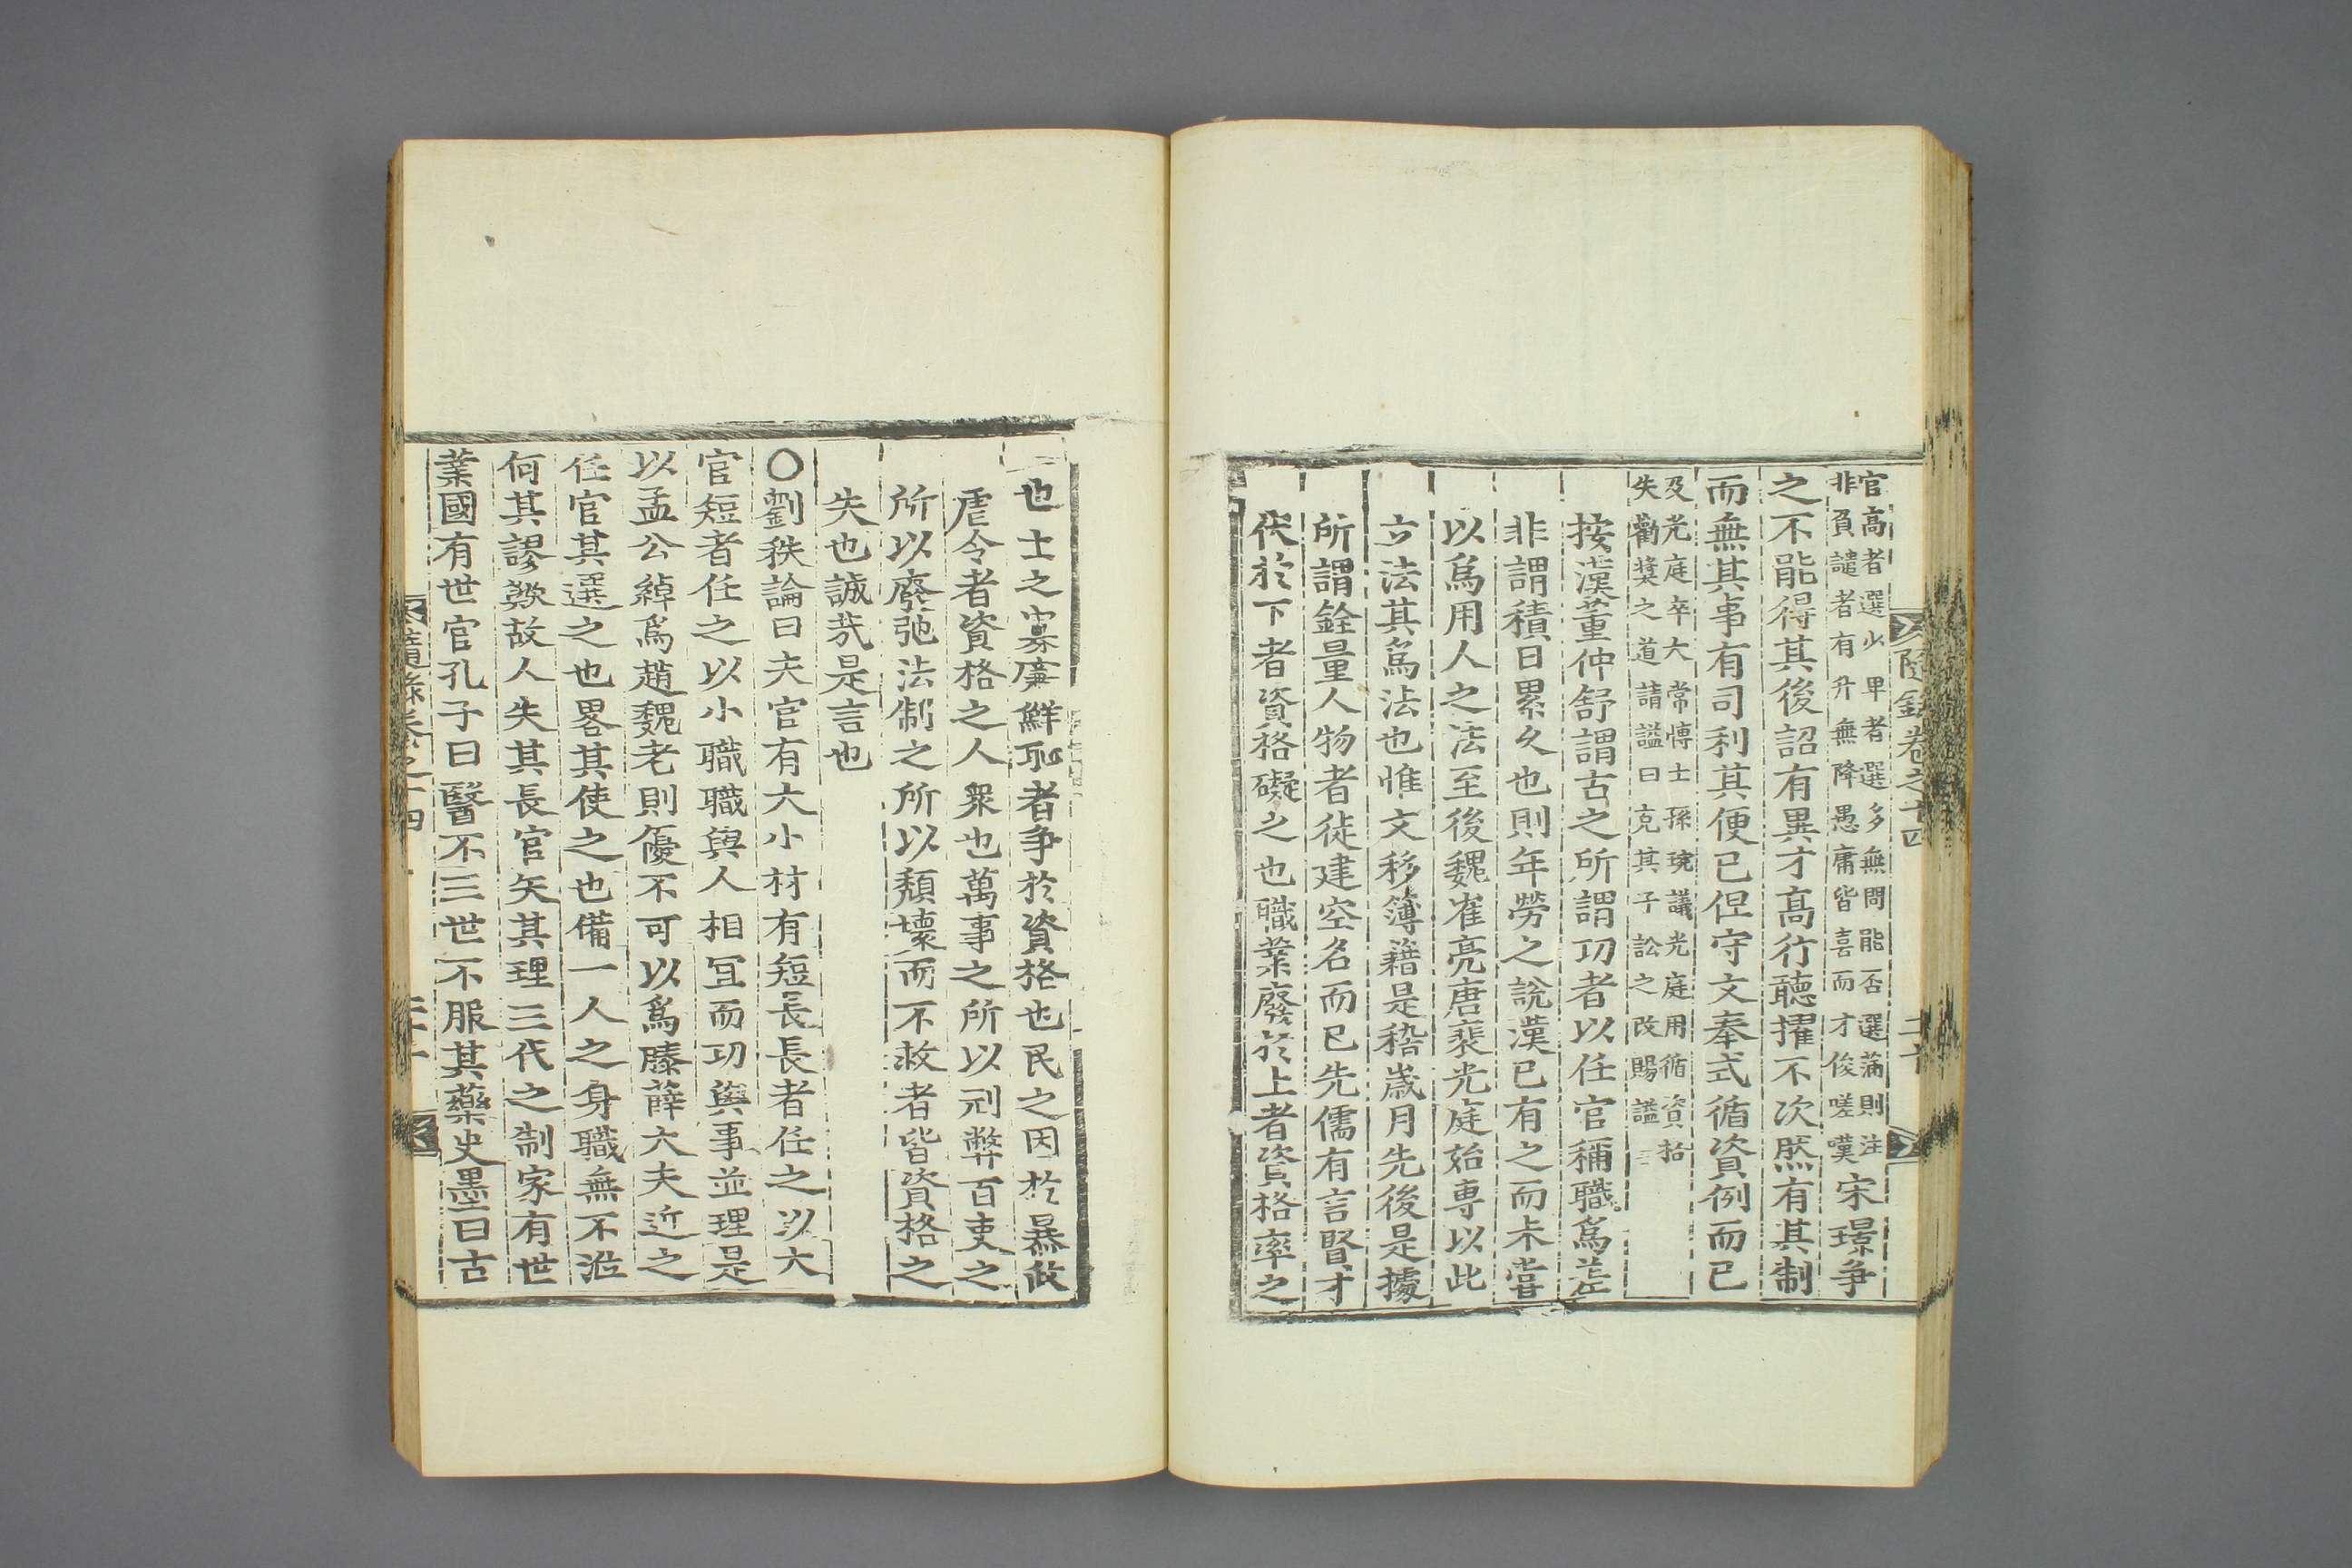 官高者選少卑者選多無問能否選滿則注
非負譴者有升無降愚庸皆喜而才俊嗟嘆
宋璟爭
之不能得其後詔有異才高行聽擢不次然有其制
而無其事有司利其便已但守文奉式循資例而已
及光庭卒大常博士孫琬議光庭用循資格
失勸奬之道請謚曰克其子訟之改賜謚
按漢董仲舒謂古之所謂功者以任官稱職爲差
非謂積日累久也則年勞之說漢已有之而未嘗
以爲用人之法至後魏崔亮唐裴光庭始專以此
立法其爲法也惟文移簿籍是稽歲月先後是據
所謂銓量人物者徒建空名而已先儒有言賢才
伏於下者資格礙之也職業廢於上者資格率之
隨錄卷之十四
二十
也士之寡廉鮮恥者爭於資格也民之困於暴政
虐令者資格之人衆也萬事之所以刓弊百吏之
所以廢弛法制之所以頹壞而不救者皆資格之
失也誠哉是言也
○劉秩論曰夫官有大小材有短長長者任之以大
官短者任之以小職職與人相宜而功與事並理是
以孟公綽爲趙魏老則優不可以爲滕薛大夫近之
任官其選之也畧其使之也備一人之身職無不涖
何其謬歟故人失其長官失其理三代之制家有世
業國有世官孔子曰醫不三世不服其藥史墨曰古
隨錄卷之十四
二十一